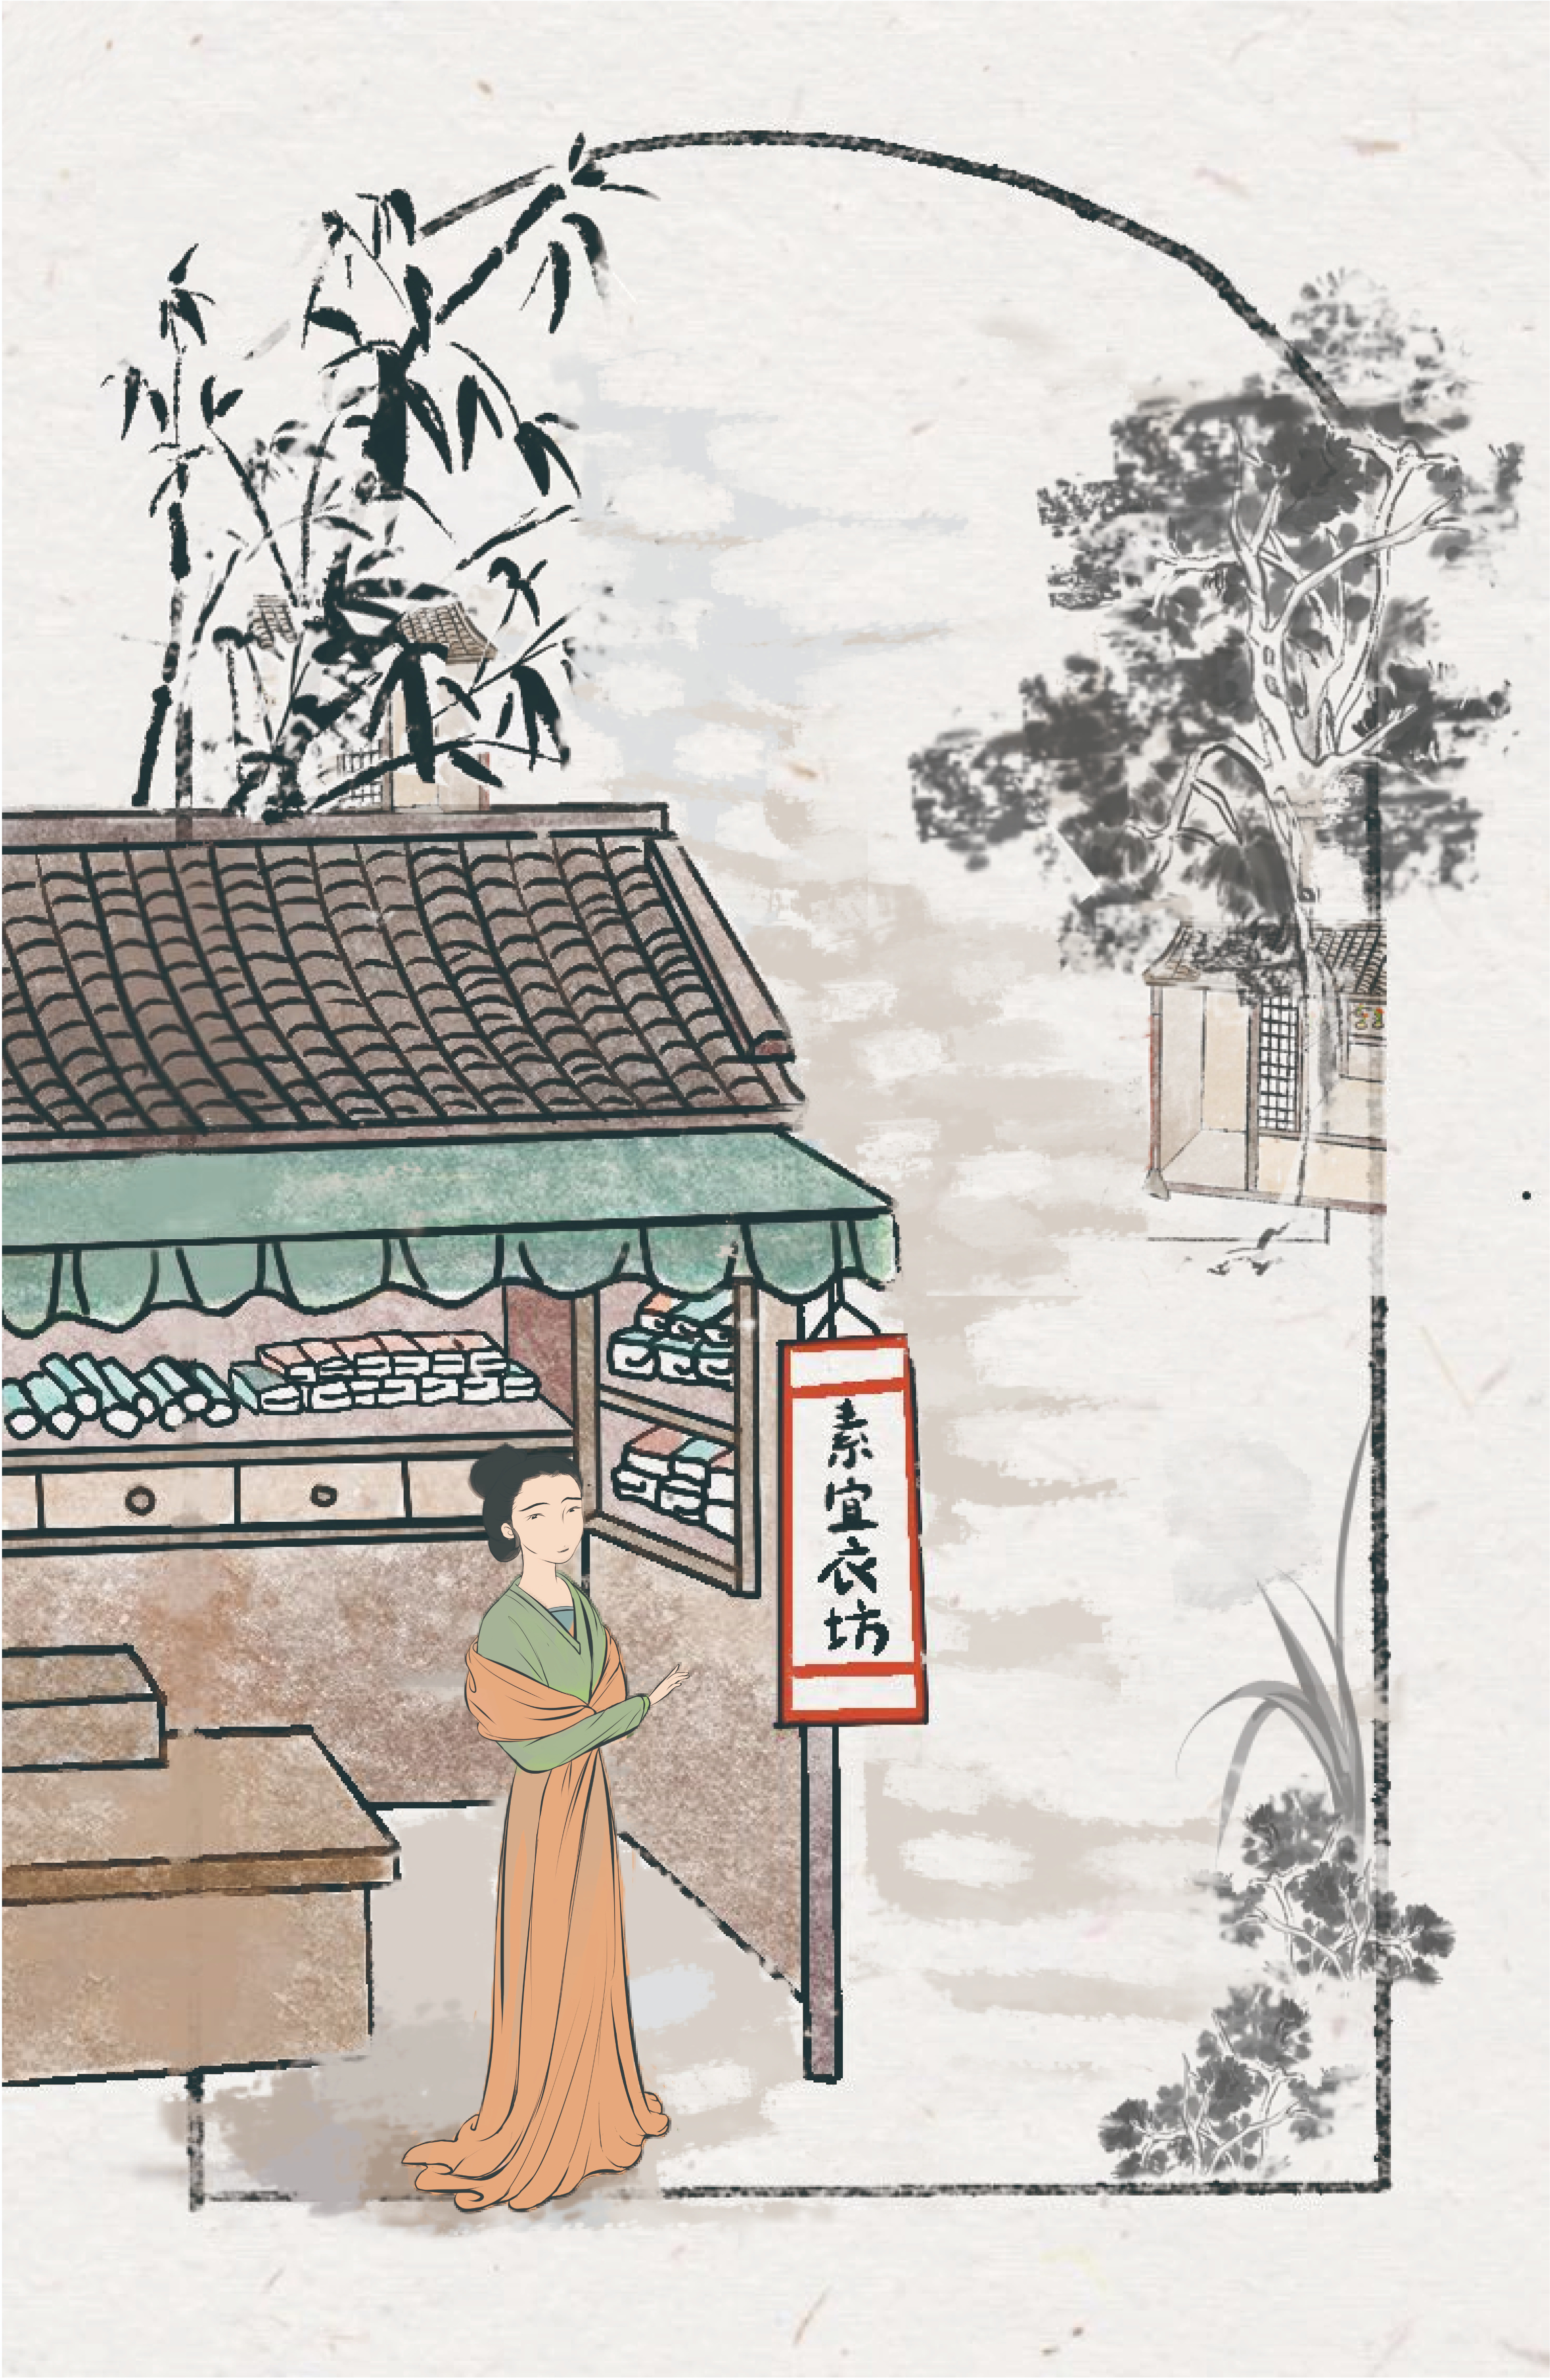 素宜衣坊